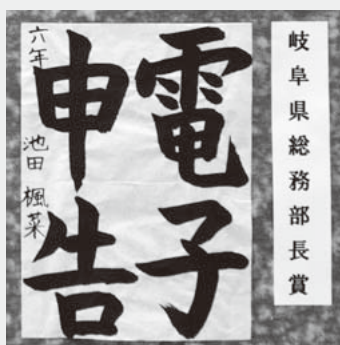 岐阜県総務部長賞
電子
申告
六年 池田 楓菜